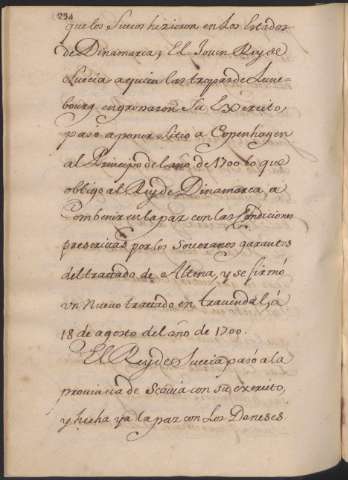 234
que los Suecos hizieron en los Estados
de Dinamarca; El Joven Rey de
Suecia a quien las tropas de Lune-
bourg engrosaron su Exercito,
paso a poner Sitio a Copenhagen
al Principio de l año de 1700 lo que
obligo al Rey de Dinamarca, a
Combenir en la paz con las Condiciones
prescritas por los Soueranos garantes
del trattado de Altena, y se firmó
vn Nueuo trattado en trauendal, á
18 de agosto del año de 1700.
El Rey de Suecia pasó a la
provincia de Scania con su exercito,
y hecha ya la paz con los Daneses